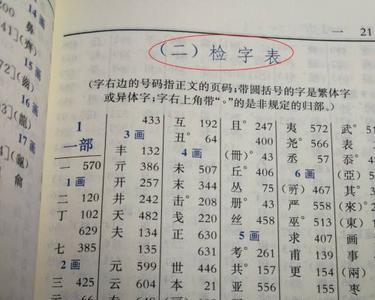 14画
鼻
(齊)
15画
(齒)
16画
(龍)
17画
龠
一 21
(二) 检 字 表
(字右边的号码指正文的页码;带圆括号的字是繁体字
或异体字;字右上角带“°”的是非规定的归部。)
1
一部
一 570
1画
二 120
丁 102
629
七 385
2画
三 425
433
3画
丰 132
亓 386
开 257
井 242
天 482
夫 134
135
元 599
云 604
互 192
丑° 64
4画
未 507
末 344
击° 208
戋 220
正 630
631
世 446
本 21
且° 247
400
(冊)° 43
丘° 406
丛 75
册° 43
丝 458
5画
考° 261
共° 157
亚 556
夷 572
尧° 566
丞 57
6画
467
严 558
巫° 513
求 407
甫 139
更 154
武°
表
忝°
(亞)
其°
(來)°
(東)
画
事
(兩)
枣